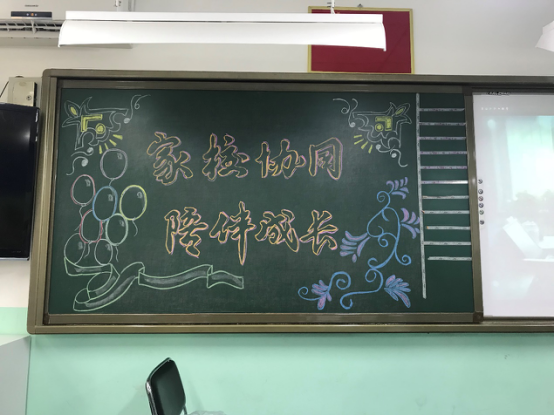 家校协同
陪伴成长